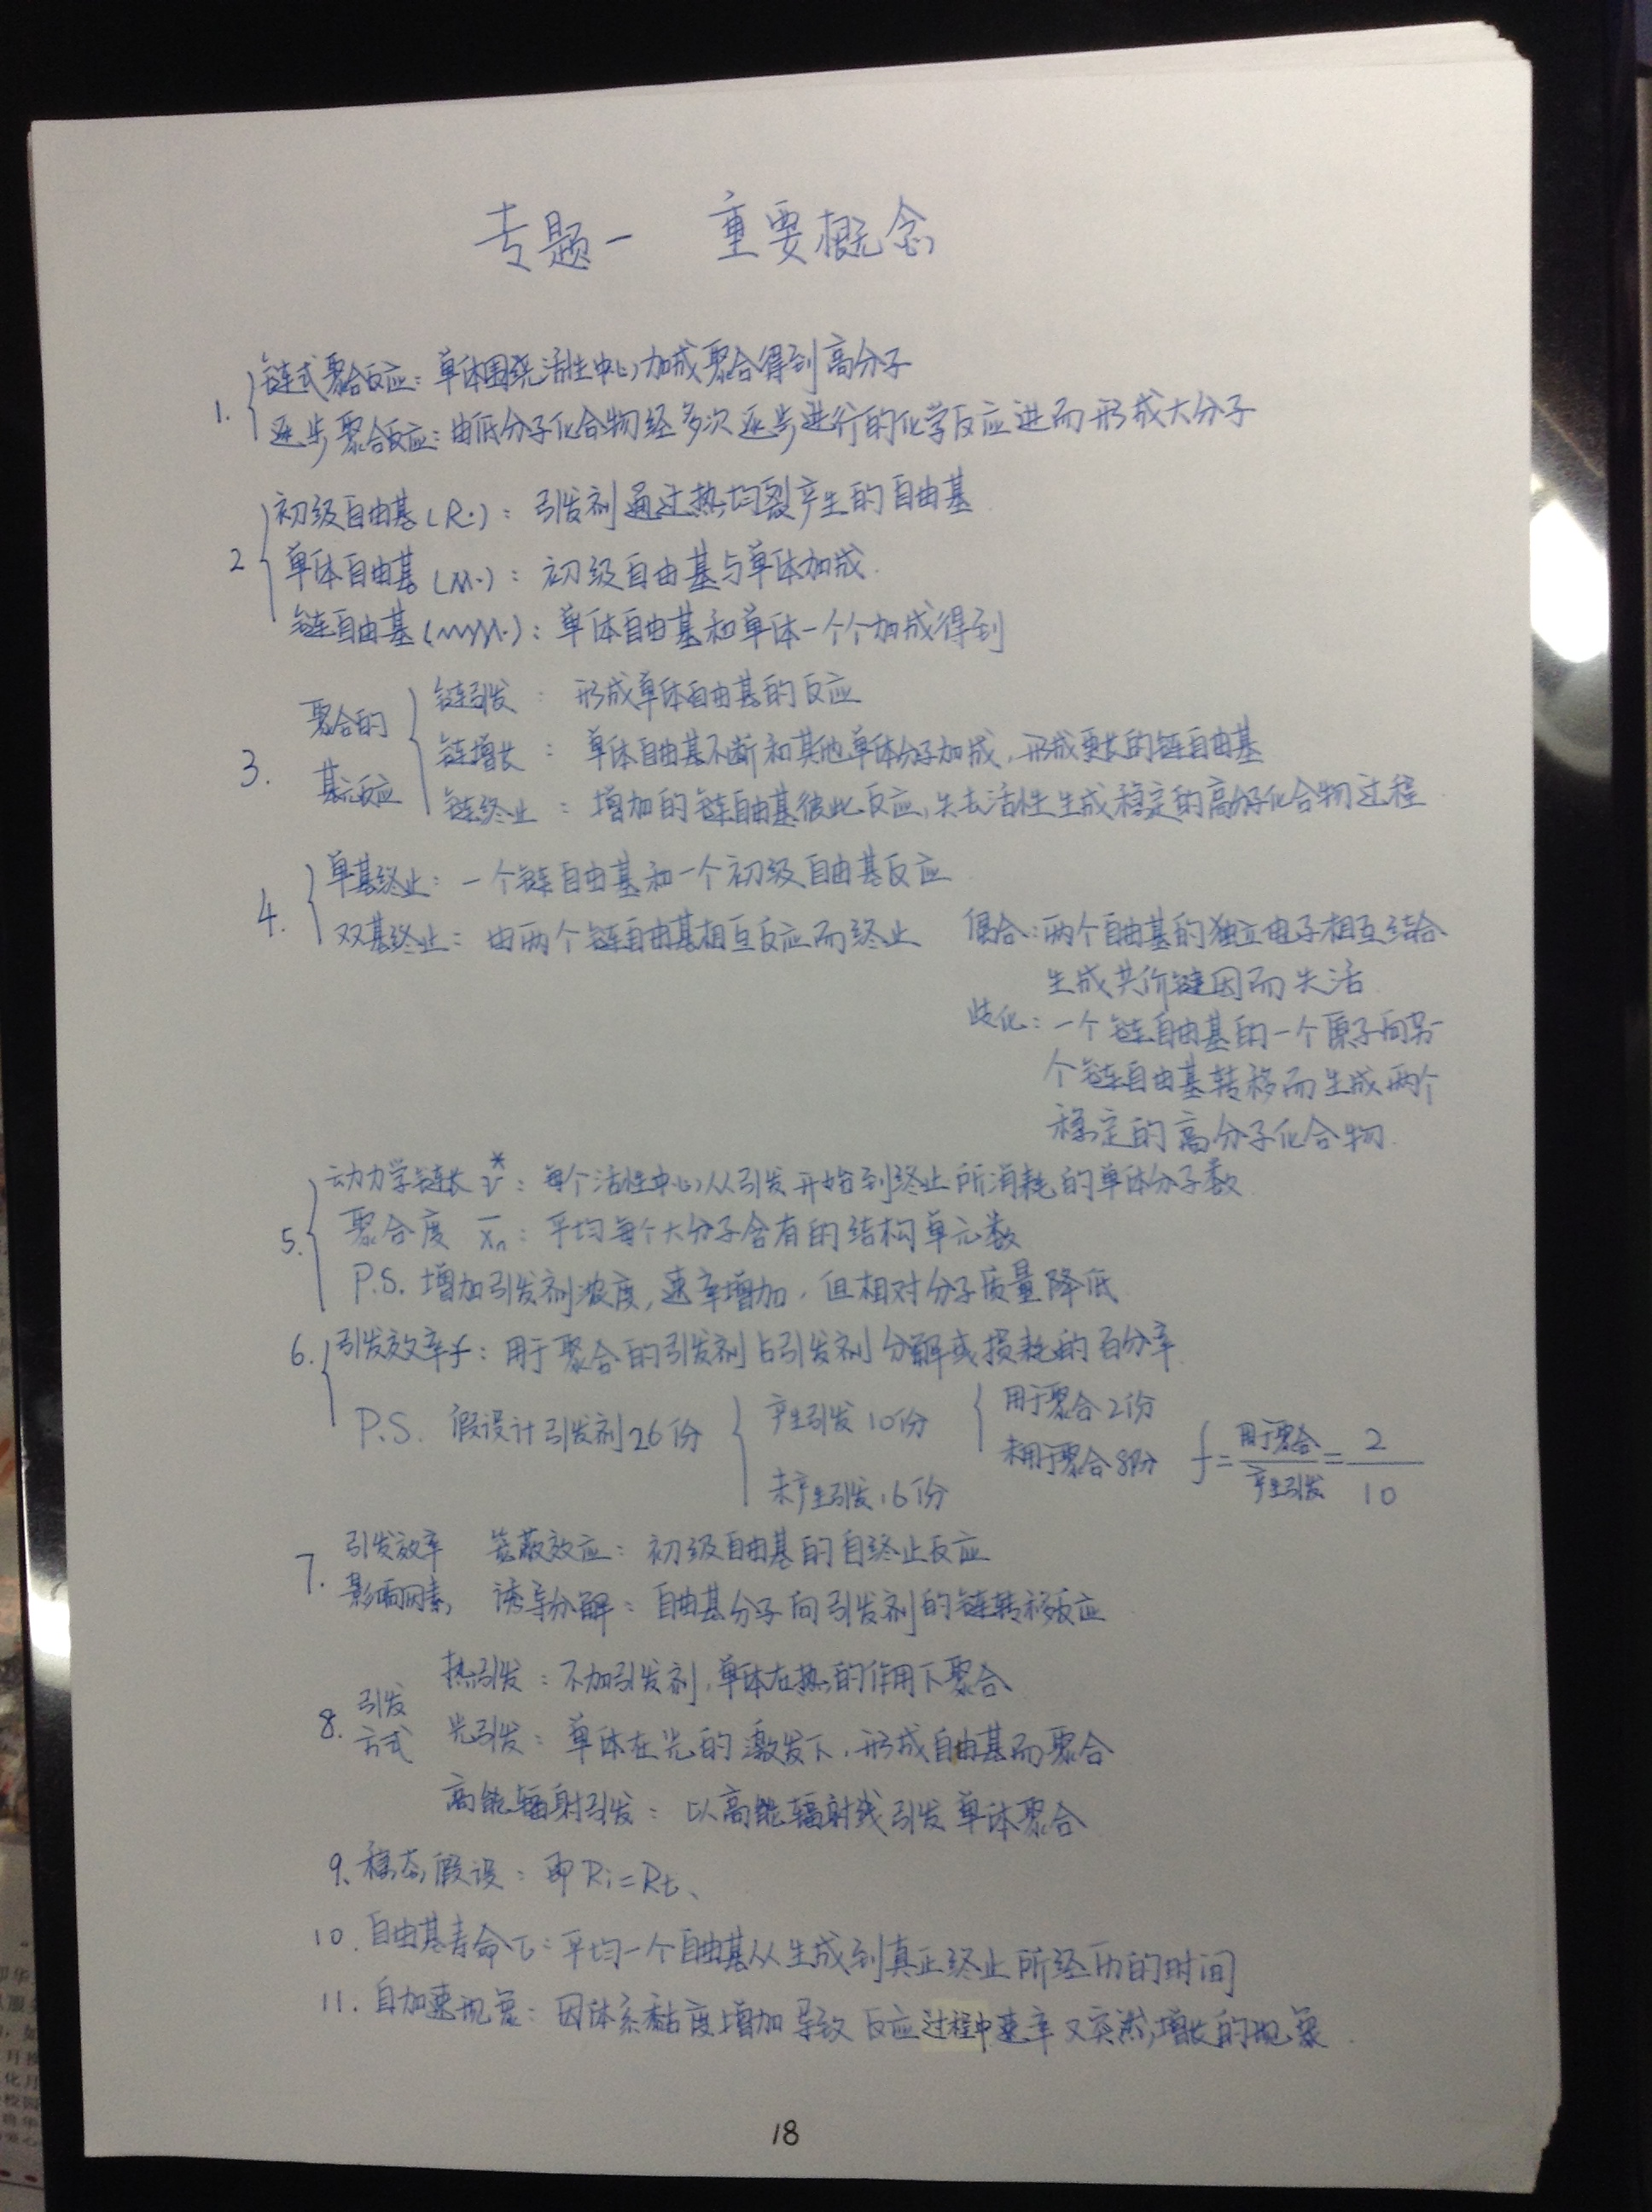 专题一 重要概念
1. 链式聚合反应：单体围绕活性中心加成聚合得到高分子
逐步聚合反应：由低分子化合物经多次逐步进行的化学反应进而形成大分子
2 初级自由基(R·)：引发剂通过热均裂产生的自由基
单体自由基(M·)：初级自由基与单体加成.
链自由基(~~~M·)：单体自由基和单体一个个加成得到
3. 聚合的基元反应
链引发：形成单体自由基的反应
链增长：单体自由基不断和其他单体分子加成,形成更长的链自由基
链终止：增加的链自由基彼此反应,失去活性生成稳定的高分子化合物过程
4. 单基终止：一个链自由基和一个初级自由基反应
双基终止：由两个链自由基相互反应而终止
偶合：两个自由基的独立电子相互结合
生成共价键因而失活
歧化：一个链自由基的一个原子向另一
个链自由基转移而生成两个
稳定的高分子化合物.
5. 动力学链长 ν*：每个活性中心从引发开始到终止所消耗的单体分子数
聚合度 x̄n：平均每个大分子含有的结构单元数
P.S. 增加引发剂浓度,速率增加,但相对分子质量降低
6. 引发效率f：用于聚合的引发剂占引发剂分解或损耗的百分率
P.S. 假设计引发剂26份
产生引发10份
未产生引发16份
用于聚合2份
未用于聚合8份
f=用于聚合/产生引发=2/10
7. 引发效率影响因素
笼蔽效应：初级自由基的自终止反应
诱导分解：自由基分子向引发剂的链转移反应
8. 引发方式
热引发：不加引发剂,单体在热的作用下聚合
光引发：单体在光的激发下,形成自由基而聚合
高能辐射引发：以高能辐射线引发单体聚合
9、稳态假设：即Ri=Rt、
10. 自由基寿命τ：平均一个自由基从生成到真正终止所经历的时间
11. 自加速现象：因体系黏度增加导致反应过程中速率又突然增长的现象.
18